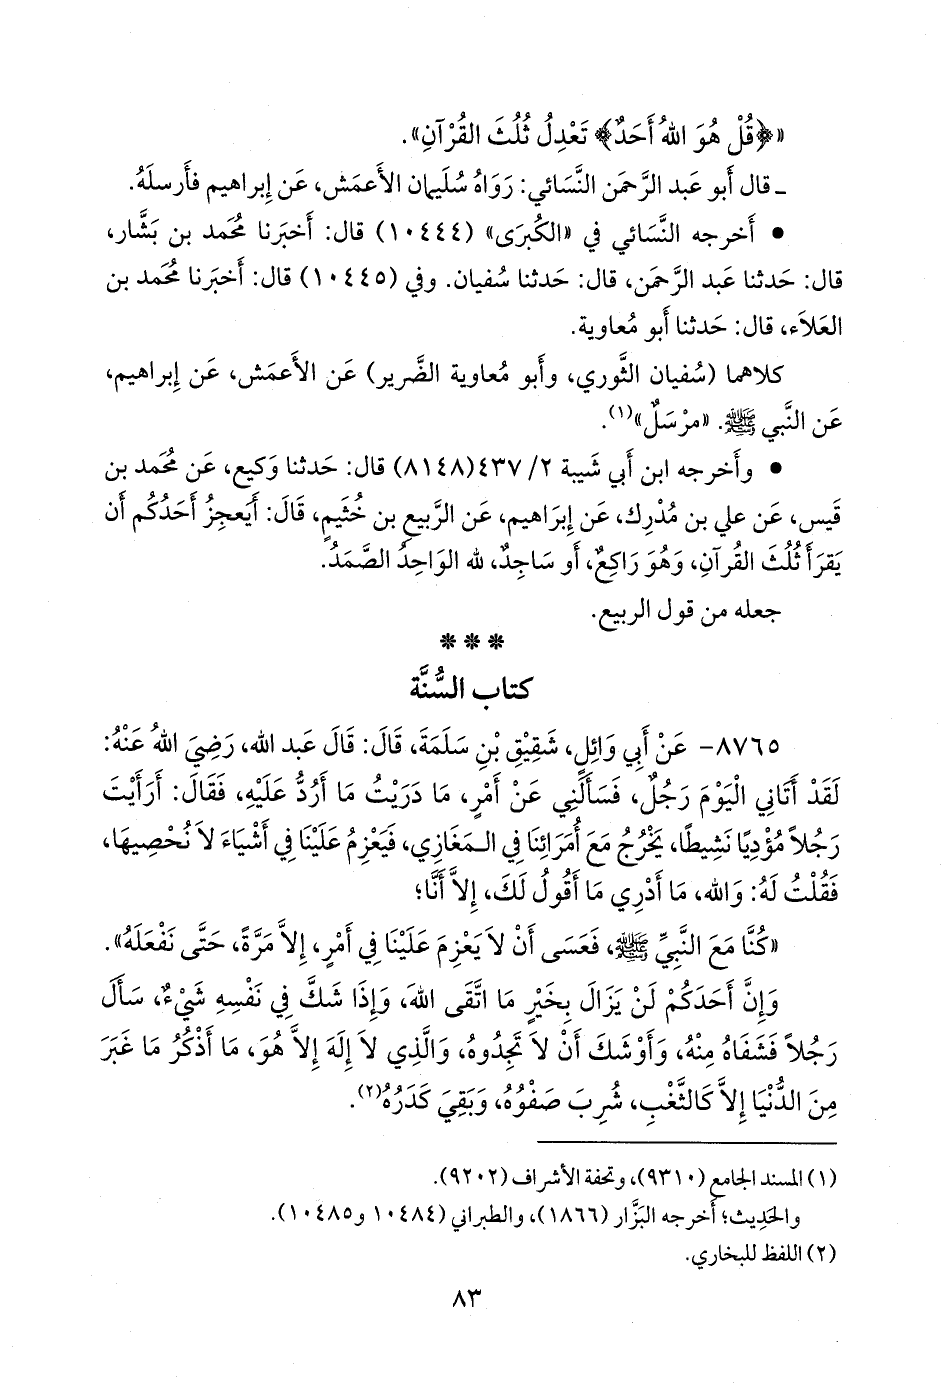 «﴿قُلْ هُوَ اللهُ أَحَدٌ﴾ تَعْدِلُ ثُلُثَ القُرْآنِ».
ـ قال أَبو عَبد الرَّحمَن النَّسَائي: رَوَاهُ سُلَيمان الأَعمَش، عَن إِبراهيم فأَرسلَهُ.
• أَخرجه النَّسَائي في «الكُبرَى» (١٠٤٤٤) قال: أَخبَرنا مُحَمد بن بَشَّار،
قال: حَدثنا عَبد الرَّحمَن، قال: حَدثنا سُفيان. وفي (١٠٤٤٥) قال: أَخبَرنا مُحَمد بن
العَلاَء، قال: حَدثنا أَبو مُعاوية.
كلاهما (سُفيان الثَّوري، وأَبو مُعاوية الضَّرير) عَن الأَعمَش، عَن إِبراهيم،
عَن النَّبي ﷺ. «مرْسَلٌ»(١).
• وأَخرجه ابن أَبي شَيبة ٢/ ٤٣٧(٨١٤٨) قال: حَدثنا وَكيع، عَن مُحَمد بن
قَيس، عَن علي بن مُدْرِك، عَن إِبَراهيم، عَن الرَّبيع بن خُثَيمٍ، قَالَ: أَيَعجِزُ أَحَدُكُم أَن
يَقرَأَ ثُلُثَ القُرآنِ، وَهُوَ رَاكِعٌ، أَو سَاجِدٌ، لله الوَاحِدُ الصَّمَدُ.
جعله من قول الربيع.
* * *
كتاب السُّنَّة
٨٧٦٥- عَنْ أَبِي وَائِلٍ، شَقِيْقِ بْنِ سَلَمَةَ، قَالَ: قَالَ عَبد الله، رَضِيَ اللهُ عَنْهُ:
لَقَدْ أَتَانِي الْيَوْمَ رَجُلٌ، فَسَأَلَنِي عَنْ أَمْرٍ، مَا دَرَيْتُ مَا أَرُدُّ عَلَيْهِ، فَقَالَ: أَرَأَيْتَ
رَجُلاً مُؤْدِيًا نَشِيطًا، يَخْرُجُ مَعَ أُمَرَائِنَا فِي الـمَغَازِي، فَيَعْزِمُ عَلَيْنَا فِي أَشْيَاءَ لاَ نُحْصِيهَا،
فَقُلْتُ لَهُ: وَالله، مَا أَدْرِي مَا أَقُولُ لَكَ، إِلاَّ أَنَّا؛
«كُنَّا مَعَ النَّبِيِّ ﷺ، فَعَسَى أَنْ لاَ يَعْزِمَ عَلَيْنَا فِي أَمْرٍ، إِلاَّ مَرَّةً، حَتَّى نَفْعَلَهُ».
وَإِنَّ أَحَدَكُمْ لَنْ يَزَالَ بِخَيْرٍ مَا اتَّقَى اللهَ، وَإِذَا شَكَّ فِي نَفْسِهِ شَيْءٌ، سَأَلَ
رَجُلاً فَشَفَاهُ مِنْهُ، وَأَوْشَكَ أَنْ لاَ تَجِدُوهُ، وَالَّذِي لاَ إِلَهَ إِلاَّ هُوَ، مَا أَذْكُرُ مَا غَبَرَ
مِنَ الدُّنْيَا إِلاَّ كَالثَّغْبِ، شُرِبَ صَفْوُهُ، وَبَقِيَ كَدَرُهُ(٢).
(١) المسند الجامع (٩٣١٠)، وتحفة الأشراف (٩٢٠٢).
والحَدِيث؛ أخرجه البَزَّار (١٨٦٦)، والطبراني (١٠٤٨٤ و١٠٤٨٥).
(٢) اللفظ للبخاري.
٨٣